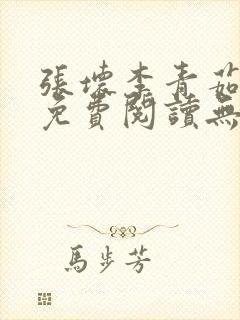 張壞李青茹
免費閱讀無
馬步芳